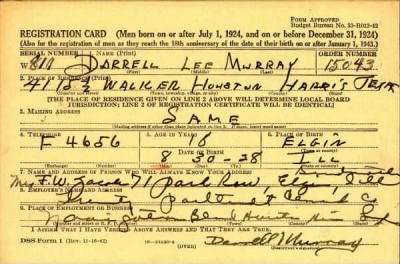 FORM APPROVED
Budget Bureau No. 33-R012-42
REGISTRATION CARD—(Men born on or after July 1, 1924, and on or before December 31, 1924)
(Also for the registration of men as they reach the 18th anniversary of the date of their birth on or after January 1, 1943.)
SERIAL NUMBER 1. NAME (Print) ORDER NUMBER
W 811 DARRELL LEE MURRAY 15043
(First) (Middle) (Last)
2. PLACE OF RESIDENCE (Print)
4115½ WALKER HOUSTON HARRIS TEXAS
[THE PLACE OF RESIDENCE GIVEN ON LINE 2 ABOVE WILL DETERMINE LOCAL BOARD
JURISDICTION; LINE 2 OF REGISTRATION CERTIFICATE WILL BE IDENTICAL]
3. MAILING ADDRESS
SAME
4. TELEPHONE 5. AGE IN YEARS 6. PLACE OF BIRTH
F 4656 18 ELGIN
DATE OF BIRTH
8 30-28 ILL
7. NAME AND ADDRESS OF PERSON WHO WILL ALWAYS KNOW YOUR ADDRESS
71 Park Row, Elgin, Ill
8. EMPLOYER'S NAME AND ADDRESS
Co
9. PLACE OF EMPLOYMENT OR BUSINESS
I AFFIRM THAT I HAVE VERIFIED ABOVE ANSWERS AND THAT THEY ARE TRUE.
DSS Form 1 (Rev. 11-16-42) (OVER) Darrell Murray